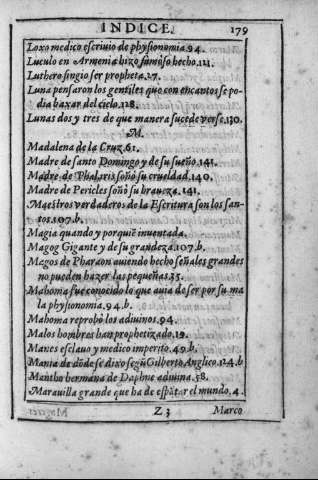 INDICE. 179
Loxo medico escriuio de physionomia.94.
Luculo en Armenia hizo famoso hecho.121.
Luthero fingio ser propheta.27.
Luna pensaron los gentiles que con encantos se po-
dia baxar del cielo.128.
Lunas dos y tres de que manera sucede verse.130.
M.
Madalena de la Cruz.61.
Madre de santo Domingo y de su sueño.141.
Madre de Phalaris soñó su crueldad.140.
Madre de Pericles soñó su braueza.141.
Maestros verdaderos de la Escritura son los san-
tos.107.b.
Magia quando y por quiē inuentada.
Magog Gigante y de su grandeza.107.b.
Magos de Pharaon auiendo hecho señales grandes
no pueden hazer las pequeñas.35.
Mahoma fue conocido lo que auia de ser por su ma
la physionomia.94.b.
Mahoma reprobó los adiuinos.94.
Malos hombres han prophetizado.19.
Manes esclauo y medico imperito.49.b.
Mania de dōde se dixo segū Gilberto Anglico.124.b
Mantho hermana de Daphne adiuina.58.
Marauilla grande que ha de espātar el mundo.4.
Z 3 Marco